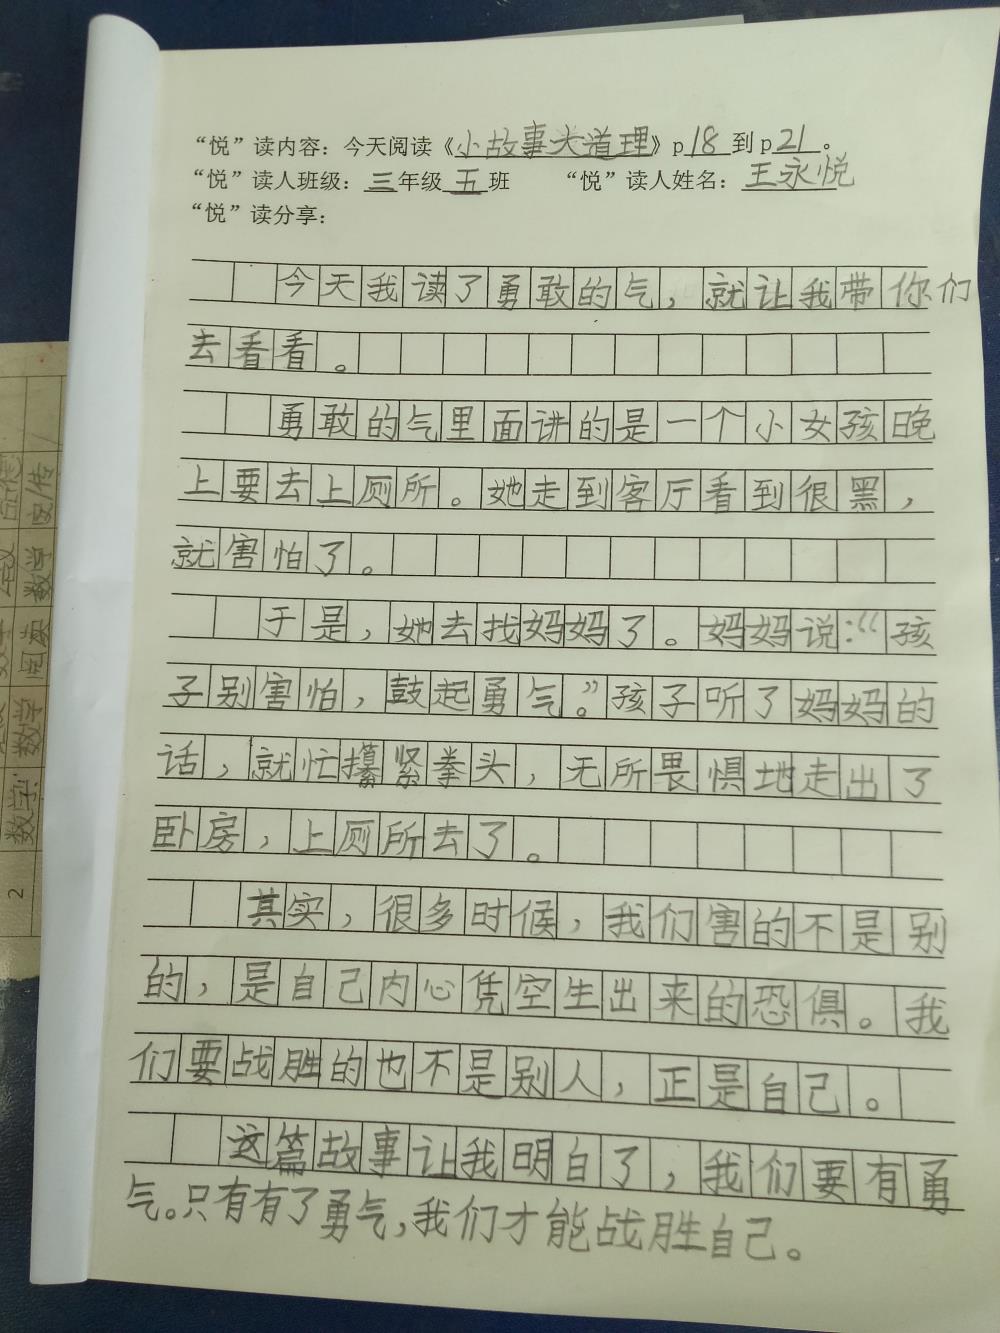 “悦”读内容：今天阅读《小故事大道理》p18到p21。
“悦”读人班级：三年级五班 “悦”读人姓名：王永悦
“悦”读分享：
今天我读了勇敢的气，就让我带你们
去看看。
勇敢的气里面讲的是一个小女孩晚
上要去上厕所。她走到客厅看到很黑，
就害怕了。
于是，她去找妈妈了。妈妈说：“孩
子别害怕，鼓起勇气。”孩子听了妈妈的
话，就忙攥紧拳头，无所畏惧地走出了
卧房，上厕所去了。
其实，很多时候，我们害的不是别
的，是自己内心凭空生出来的恐惧。我
们要战胜的也不是别人，正是自己。
这篇故事让我明白了，我们要有勇
气。只有有了勇气，我们才能战胜自己。
数学
数学
数学
2